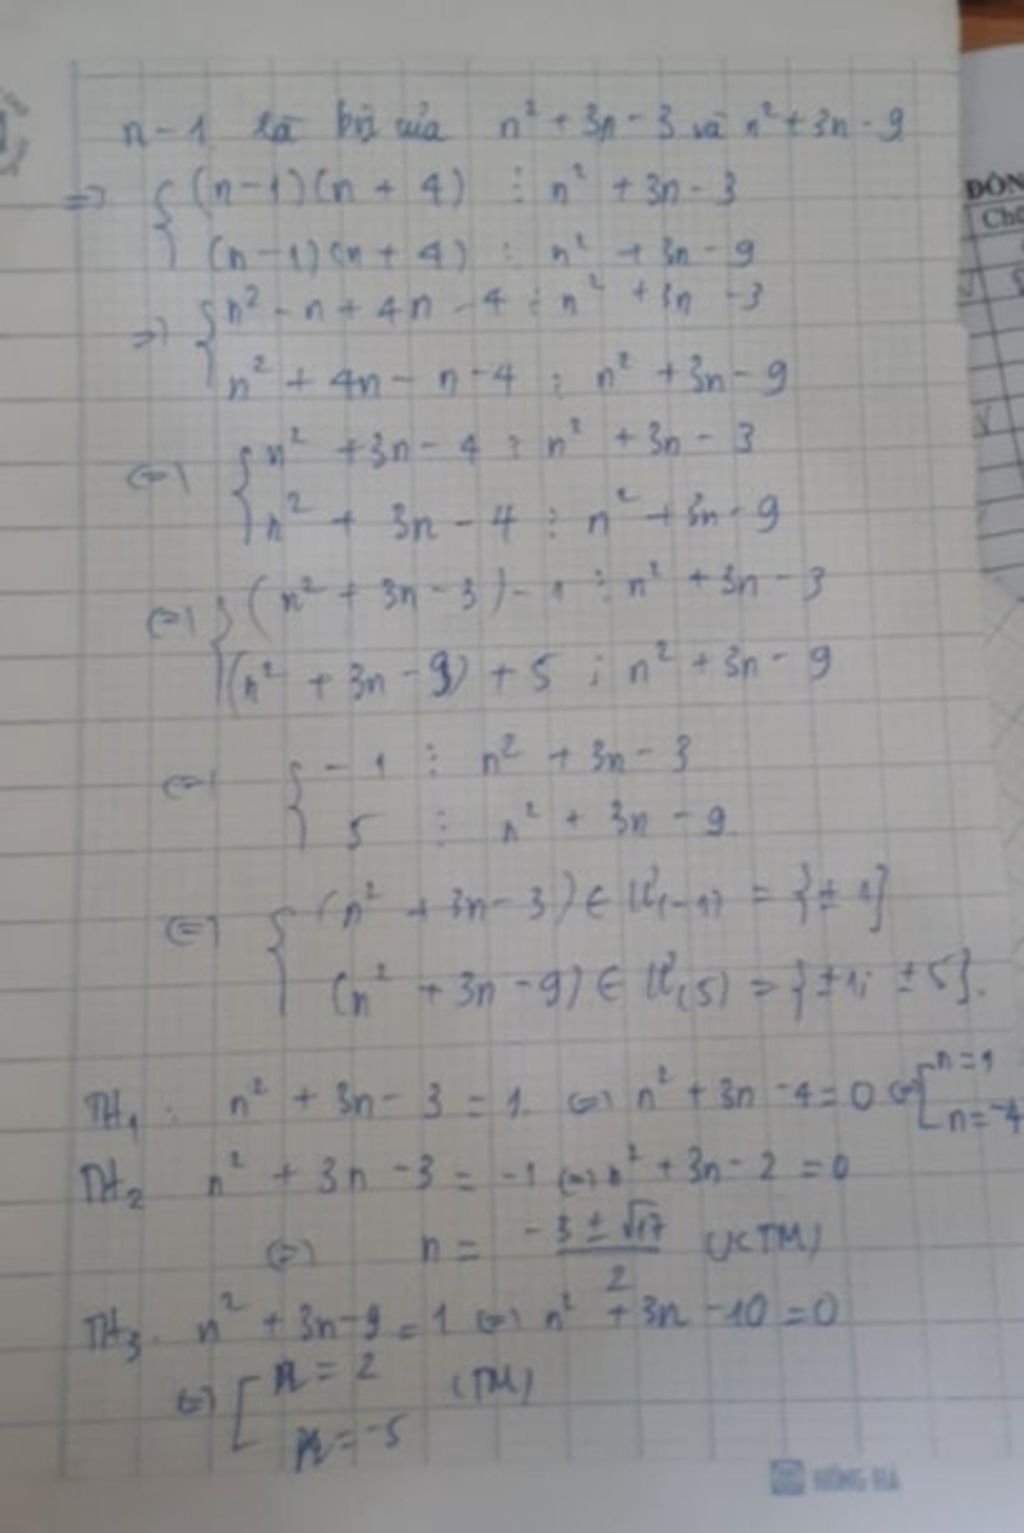 n-1 là bội của n² + 3n - 3 và n² + 3n - 9
=> { (n-1)(n + 4) ⋮ n² + 3n - 3
(n-1)(n + 4) ⋮ n² + 3n - 9
=> { n² - n + 4n - 4 ⋮ n² + 3n - 3
n² + 4n - n - 4 ⋮ n² + 3n - 9
<=> { n² + 3n - 4 ⋮ n² + 3n - 3
n² + 3n - 4 ⋮ n² + 3n - 9
<=> { (n² + 3n - 3) - 1 ⋮ n² + 3n - 3
(n² + 3n - 9) + 5 ⋮ n² + 3n - 9
<=> { -1 ⋮ n² + 3n - 3
5 ⋮ n² + 3n - 9
<=> { (n² + 3n - 3) ∈ Ư(-1) = {±1}
(n² + 3n - 9) ∈ Ư(5) = {±1; ±5}.
TH1: n² + 3n - 3 = 1 <=> n² + 3n - 4 = 0 <=> [ n = 1
n = -4
TH2 n² + 3n - 3 = -1 <=> n² + 3n - 2 = 0
<=> n = (-3 ± √17)/2 (KTM)
TH3. n² + 3n - 9 = 1 <=> n² + 3n - 10 = 0
<=> [ n = 2 (TM)
n = -5
HỒNG HÀ